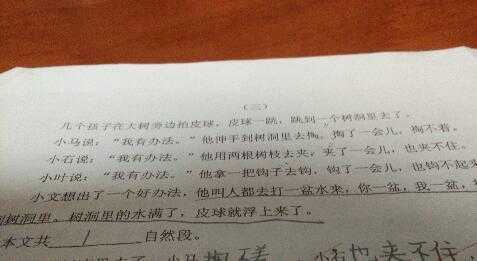 （三）
几个孩子在大树旁边拍皮球，皮球一跳，跳到一个树洞里去了。
小马说：“我有办法。”他伸手到树洞里去掏，掏了一会儿，掏不着。
小石说：“我有办法。”他用两根树枝去夹，夹了一会儿，也夹不住。
小叶说：“我有办法。”他拿一把钩子去钩，钩了一会儿，也钩不起来
小文想出了一个好办法，他叫人都去打一盆水来，你一盆，我一盆，
到树洞里。树洞里的水满了，皮球就浮上来了。
本文共 1 自然段。
小石也夹不住，